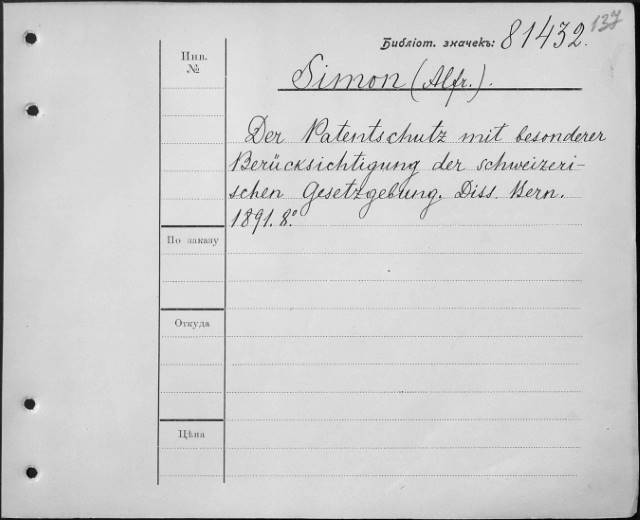 137
Библіот. значекъ: 81432.
Инв.
№
Simon (Alfr.).
Der Patentschutz mit besonderer
Berücksichtigung der schweizeri-
schen Gesetzgebung. Diss. Bern.
1891. 8°.
По заказу
Откуда
Цѣна